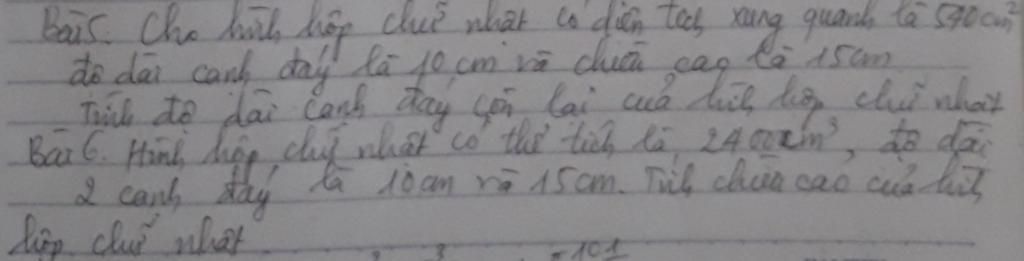 Bài 5. Cho hình hộp chữ nhật có diện tích xung quanh là 540cm²
độ dài cạnh đáy là 10cm và chiều cao là 15cm
Tính độ dài cạnh đáy còn lại của hình hộp chữ nhật
Bài 6. Hình hộp chữ nhật có thể tích là 2400cm³, độ dài
2 cạnh đáy là 10cm và 15cm. Tính chiều cao của hình
hộp chữ nhật
= 101